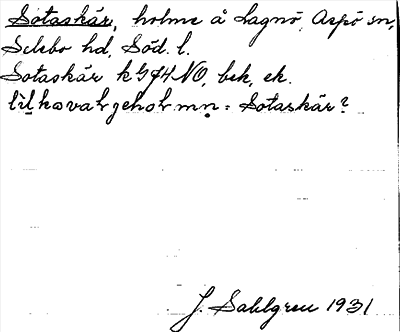 Sotaskär, holme å Lagnö, Aspö sn,
Selebo hd, Söd. l.
Sotaskär k GfH NO, bek, ek.
lilkovalrgeholmn = Sotaskär?
J. Sahlgren 1931